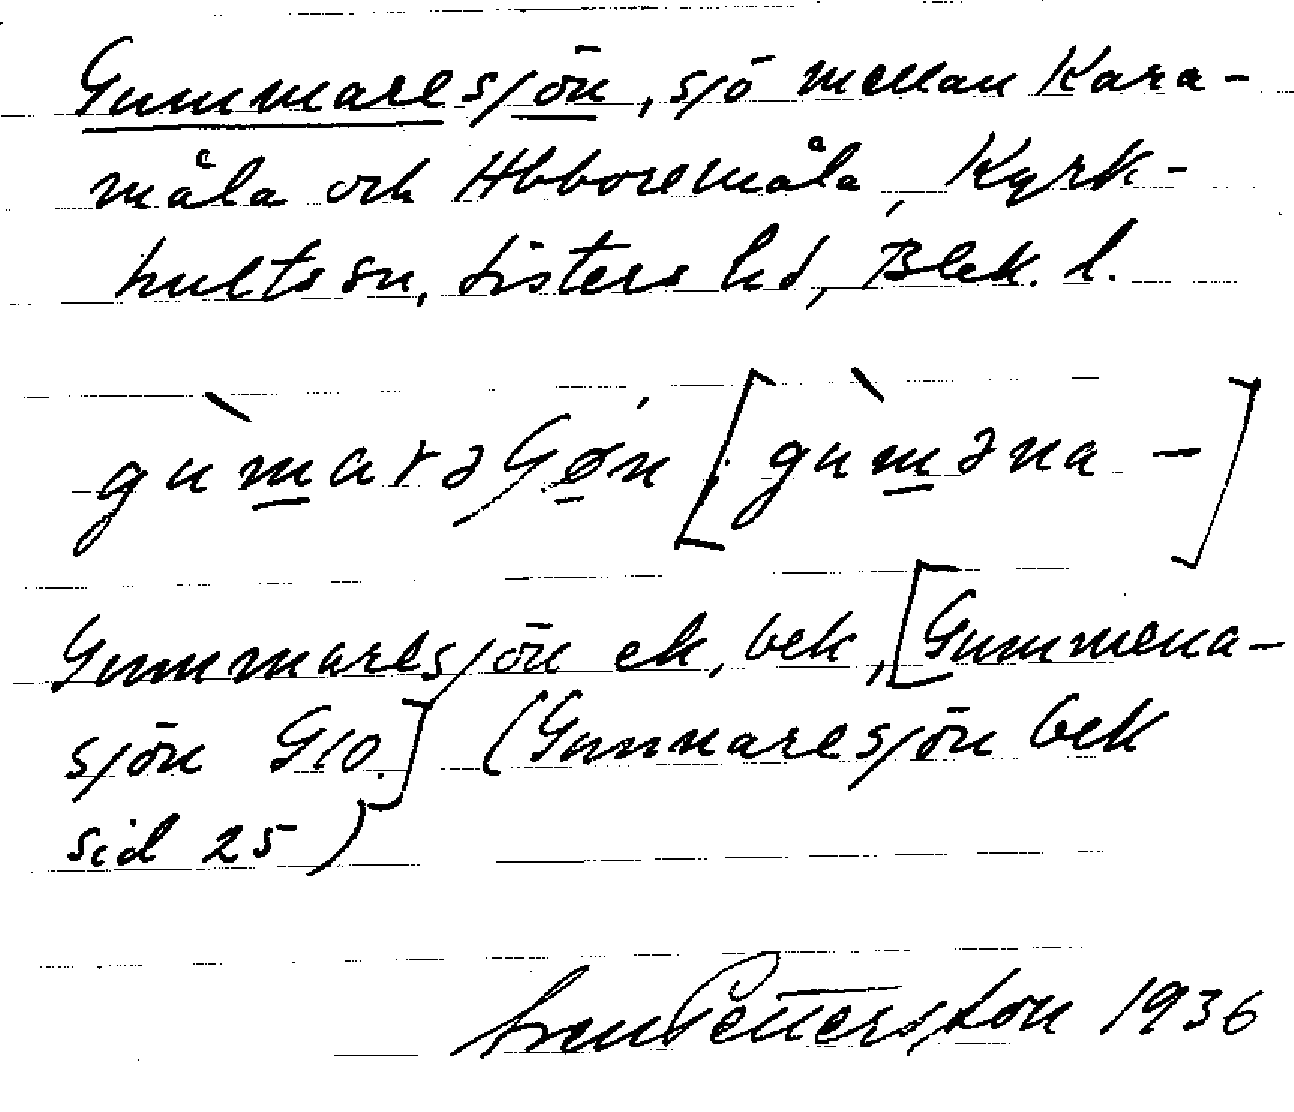 Gummaresjön, sjö mellan Kara-
måla och Abboremåla, Kyrk-
hults sn, Listers hd, Blek. l.
gùmarəʃǿ̠n [gùm̠əna-]
Gummaresjön ek, bek, [Gummena-
sjön GSO.] (Gunnaresjön bek
sid 25)
Sven Pettersson 1936